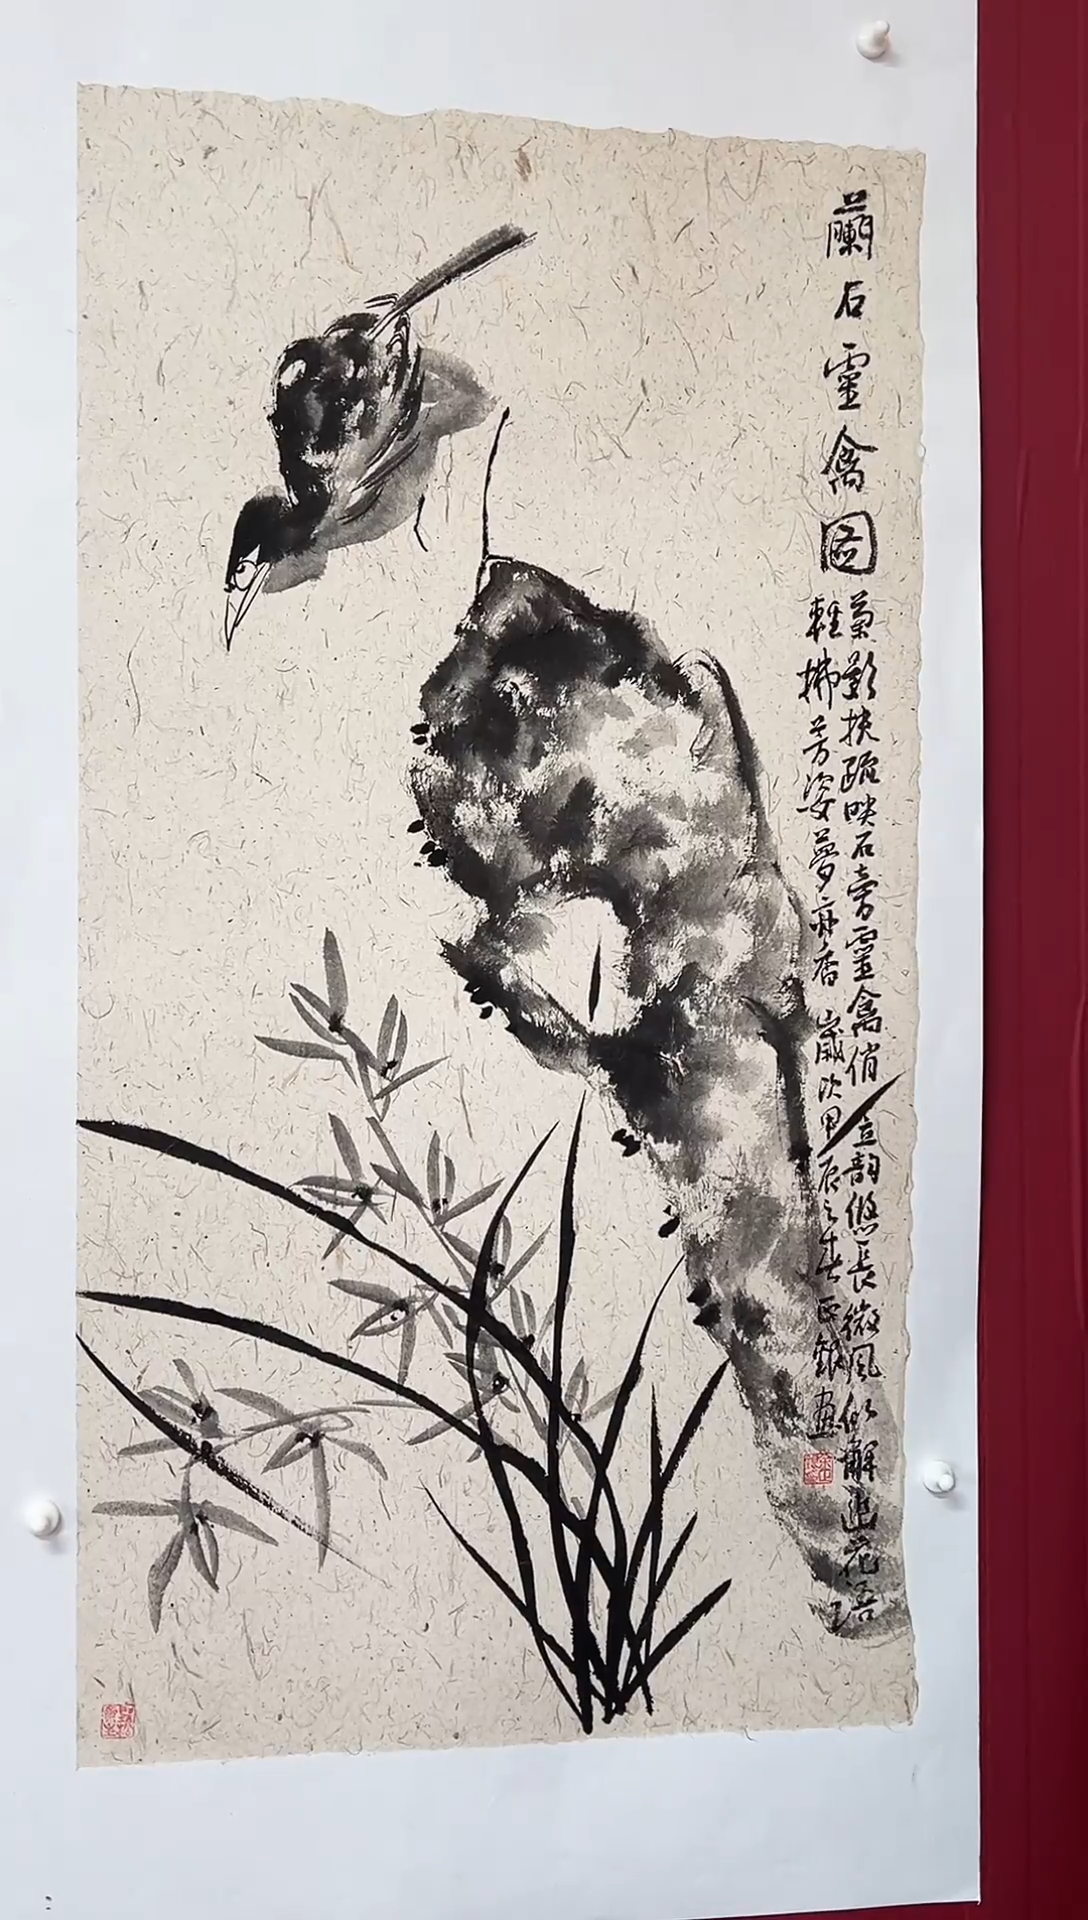 蘭石靈禽圖
蘭影扶疏映石旁靈禽俏立韵悠長微風似解幽花語
輕拂芳姿夢亦香 歲次甲辰之春正銀畫